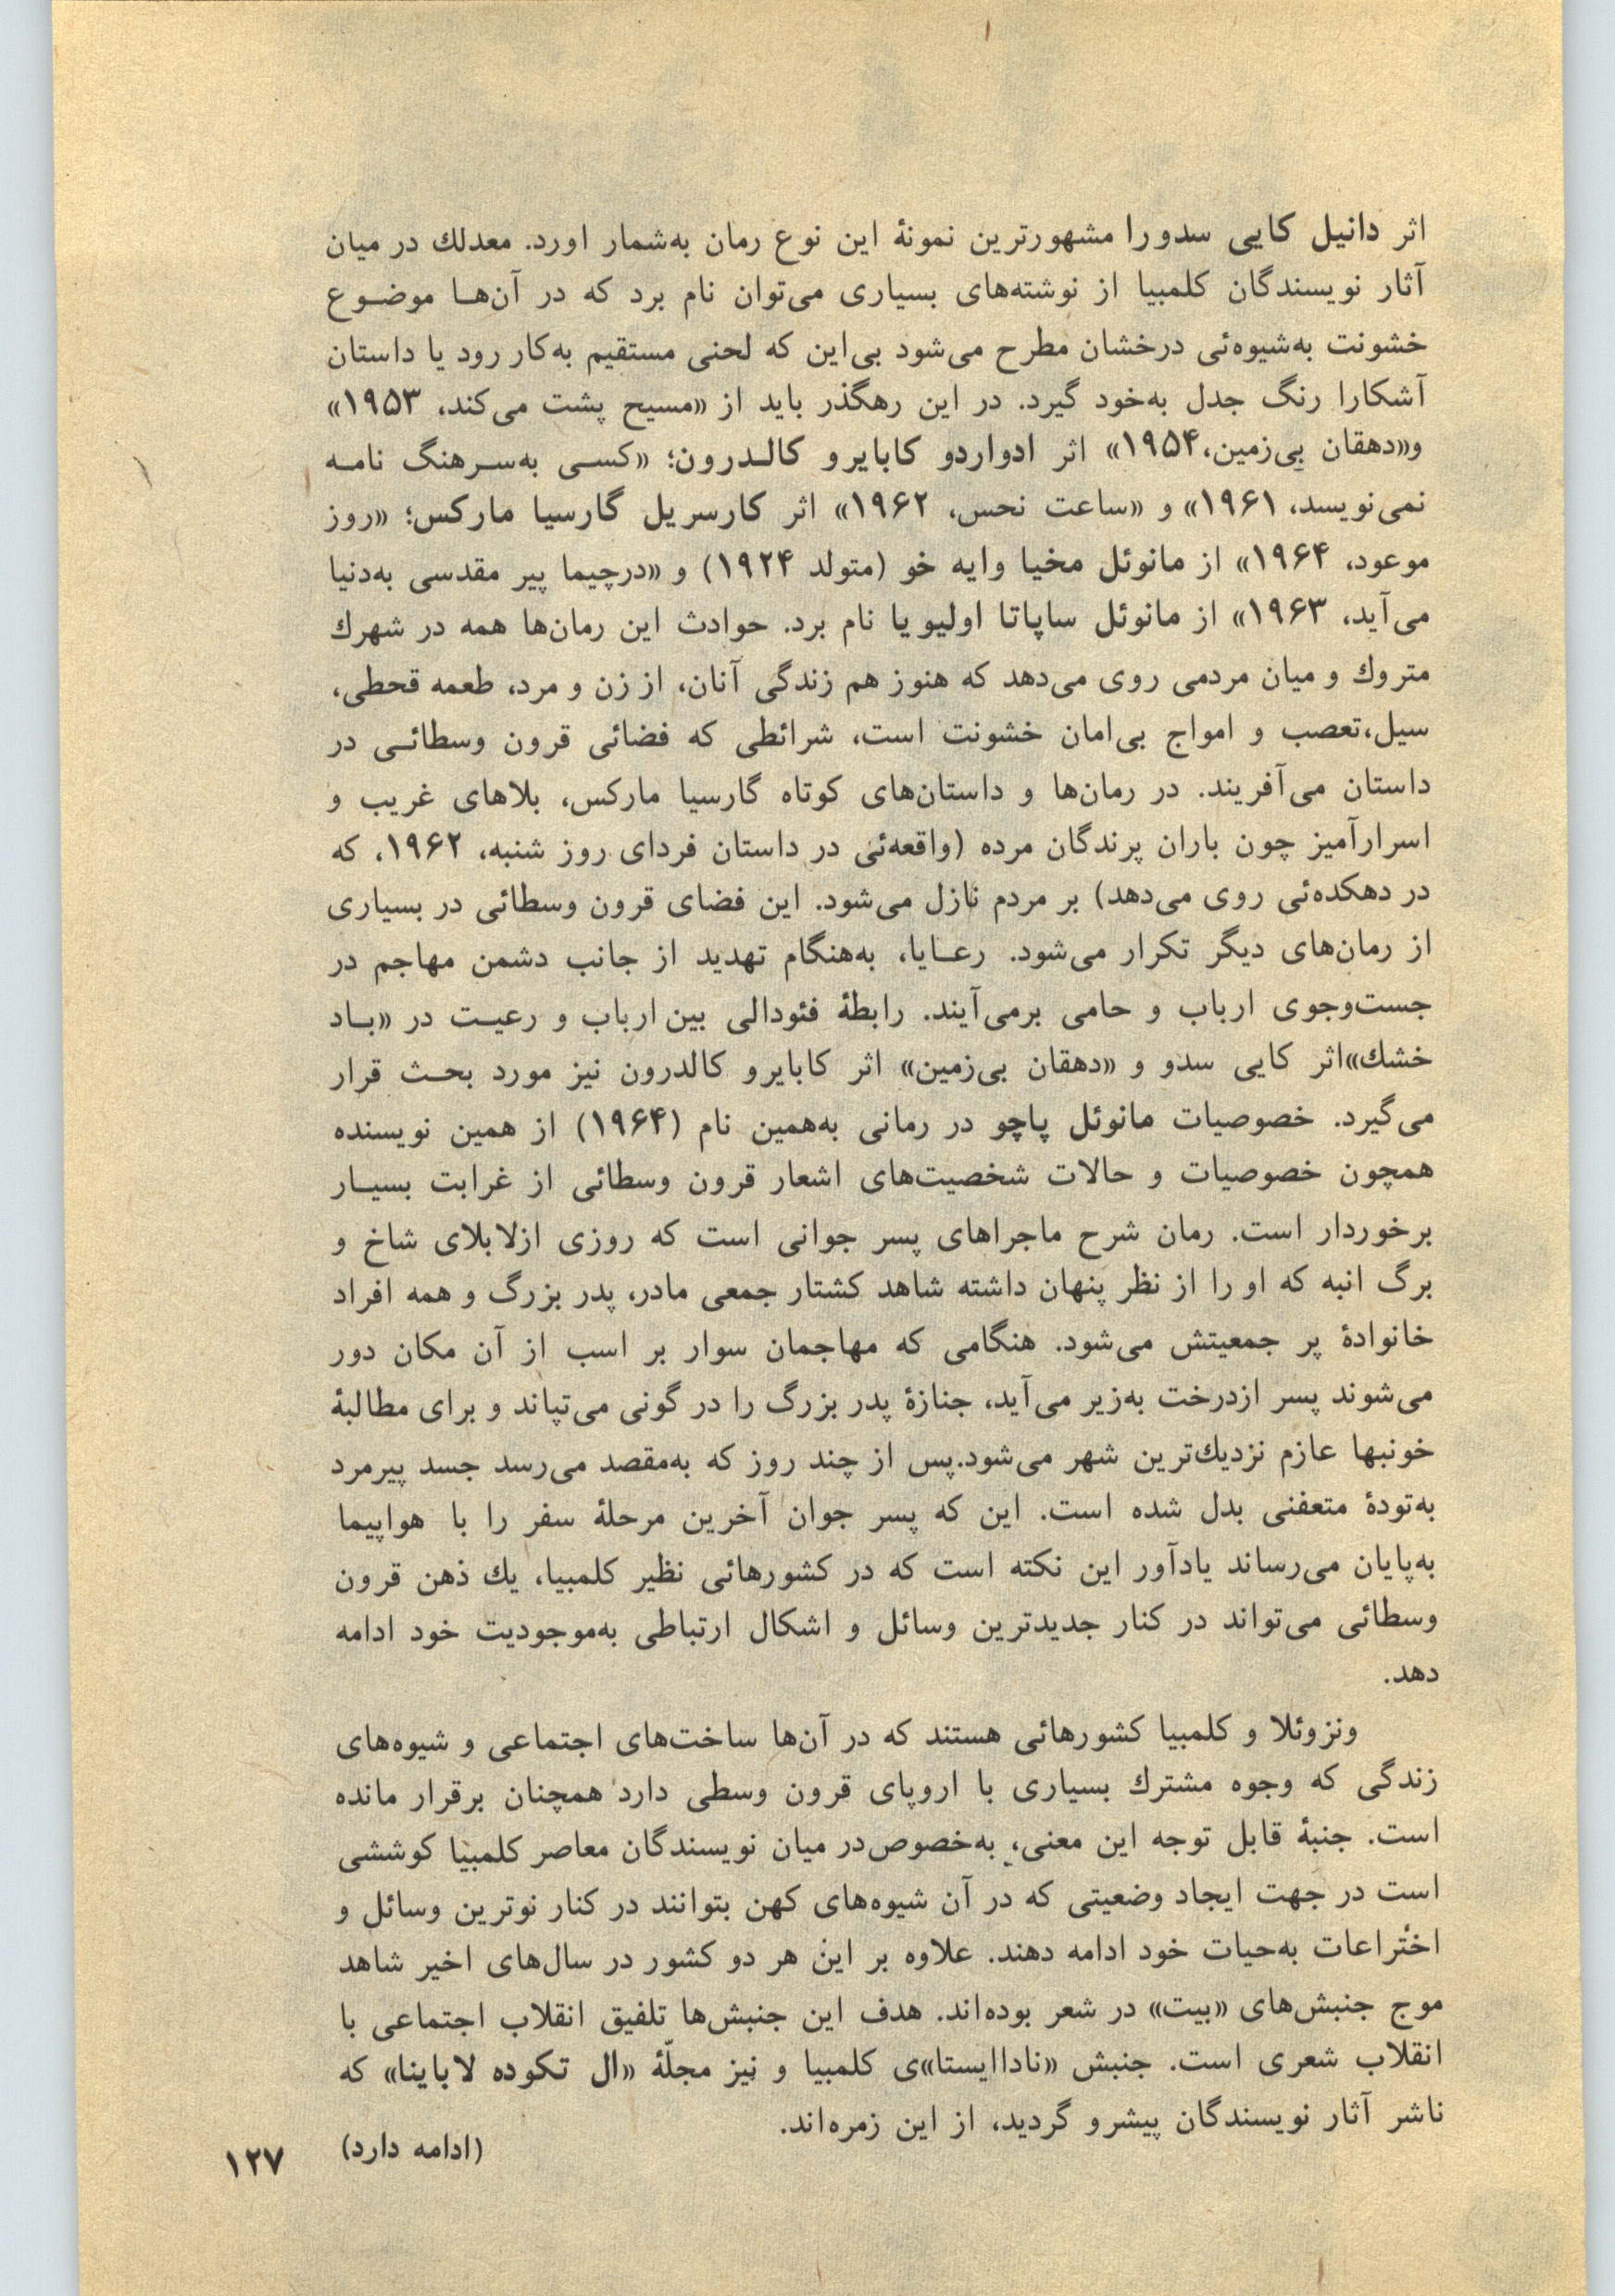 اثر دانیل کایی سدورا مشهورترین نمونهٔ این نوع رمان به‌شمار اورد. معدلك در میان
آثار نویسندگان کلمبیا از نوشته‌های بسیاری می‌توان نام برد که در آن‌هـا موضـوع
خشونت به‌شیوه‌ئی درخشان مطرح می‌شود بی‌این که لحنی مستقیم به‌کار رود یا داستان
آشکارا رنگ جدل به‌خود گیرد. در این رهگذر باید از «مسیح پشت می‌کند، ۱۹۵۳»
و«دهقان بی‌زمین،۱۹۵۴» اثر ادواردو کابایرو کالـدرون؛ «کسـی به‌سـرهنگ نامـه
نمی‌نویسد، ۱۹۶۱» و «ساعت نحس، ۱۹۶۲» اثر کارسریل گارسیا مارکس؛ «روز
موعود، ۱۹۶۴» از مانوئل مخیا وایه خو (متولد ۱۹۲۴) و «درچیما پیر مقدسی به‌دنیا
می‌آید، ۱۹۶۳» از مانوئل ساپاتا اولیویا نام برد. حوادث این رمان‌ها همه در شهرك
متروك و میان مردمی روی می‌دهد که هنوز هم زندگی آنان، از زن و مرد، طعمه قحطی،
سیل،تعصب و امواج بی‌امان خشونت است، شرائطی که فضائی قرون وسطائـی در
داستان می‌آفریند. در رمان‌ها و داستان‌های کوتاه گارسیا مارکس، بلاهای غریب و
اسرارآمیز چون باران پرندگان مرده (واقعه‌ئی در داستان فردای روز شنبه، ۱۹۶۲، که
در دهکده‌ئی روی می‌دهد) بر مردم نازل می‌شود. این فضای قرون وسطائی در بسیاری
از رمان‌های دیگر تکرار می‌شود. رعـایا، به‌هنگام تهدید از جانب دشمن مهاجم در
جست‌وجوی ارباب و حامی برمی‌آیند. رابطهٔ فئودالی بین ارباب و رعیـت در «بـاد
خشك»اثر کایی سدو و «دهقان بی‌زمین» اثر کابایرو کالدرون نیز مورد بحـث قرار
می‌گیرد. خصوصیات مانوئل پاچو در رمانی به‌همین نام (۱۹۶۴) از همین نویسنده
همچون خصوصیات و حالات شخصیت‌های اشعار قرون وسطائی از غرابت بسیـار
برخوردار است. رمان شرح ماجراهای پسر جوانی است که روزی ازلابلای شاخ و
برگ انبه که او را از نظر پنهان داشته شاهد کشتار جمعی مادر، پدر بزرگ و همه افراد
خانوادهٔ پر جمعیتش می‌شود. هنگامی که مهاجمان سوار بر اسب از آن مکان دور
می‌شوند پسر ازدرخت به‌زیر می‌آید، جنازهٔ پدر بزرگ را در گونی می‌تپاند و برای مطالبهٔ
خونبها عازم نزدیك‌ترین شهر می‌شود.پس از چند روز که به‌مقصد می‌رسد جسد پیرمرد
به‌تودهٔ متعفنی بدل شده است. این که پسر جوان آخرین مرحلهٔ سفر را با هواپیما
به‌پایان می‌رساند یادآور این نکته است که در کشورهائی نظیر کلمبیا، یك ذهن قرون
وسطائی می‌تواند در کنار جدیدترین وسائل و اشکال ارتباطی به‌موجودیت خود ادامه
دهد.
ونزوئلا و کلمبیا کشورهائی هستند که در آن‌ها ساخت‌های اجتماعی و شیوه‌های
زندگی که وجوه مشترك بسیاری با اروپای قرون وسطی دارد همچنان برقرار مانده
است. جنبهٔ قابل توجه این معنی، به‌خصوص‌در میان نویسندگان معاصر کلمبیا کوششی
است در جهت ایجاد وضعیتی که در آن شیوه‌های کهن بتوانند در کنار نوترین وسائل و
اختراعات به‌حیات خود ادامه دهند. علاوه بر این هر دو کشور در سال‌های اخیر شاهد
موج جنبش‌های «بیت» در شعر بوده‌اند. هدف این جنبش‌ها تلفیق انقلاب اجتماعی با
انقلاب شعری است. جنبش «ناداایستا»ی کلمبیا و نیز مجلّهٔ «ال تکوده لاباینا» که
ناشر آثار نویسندگان پیشرو گردید، از این زمره‌اند.
(ادامه دارد)
۱۲۷